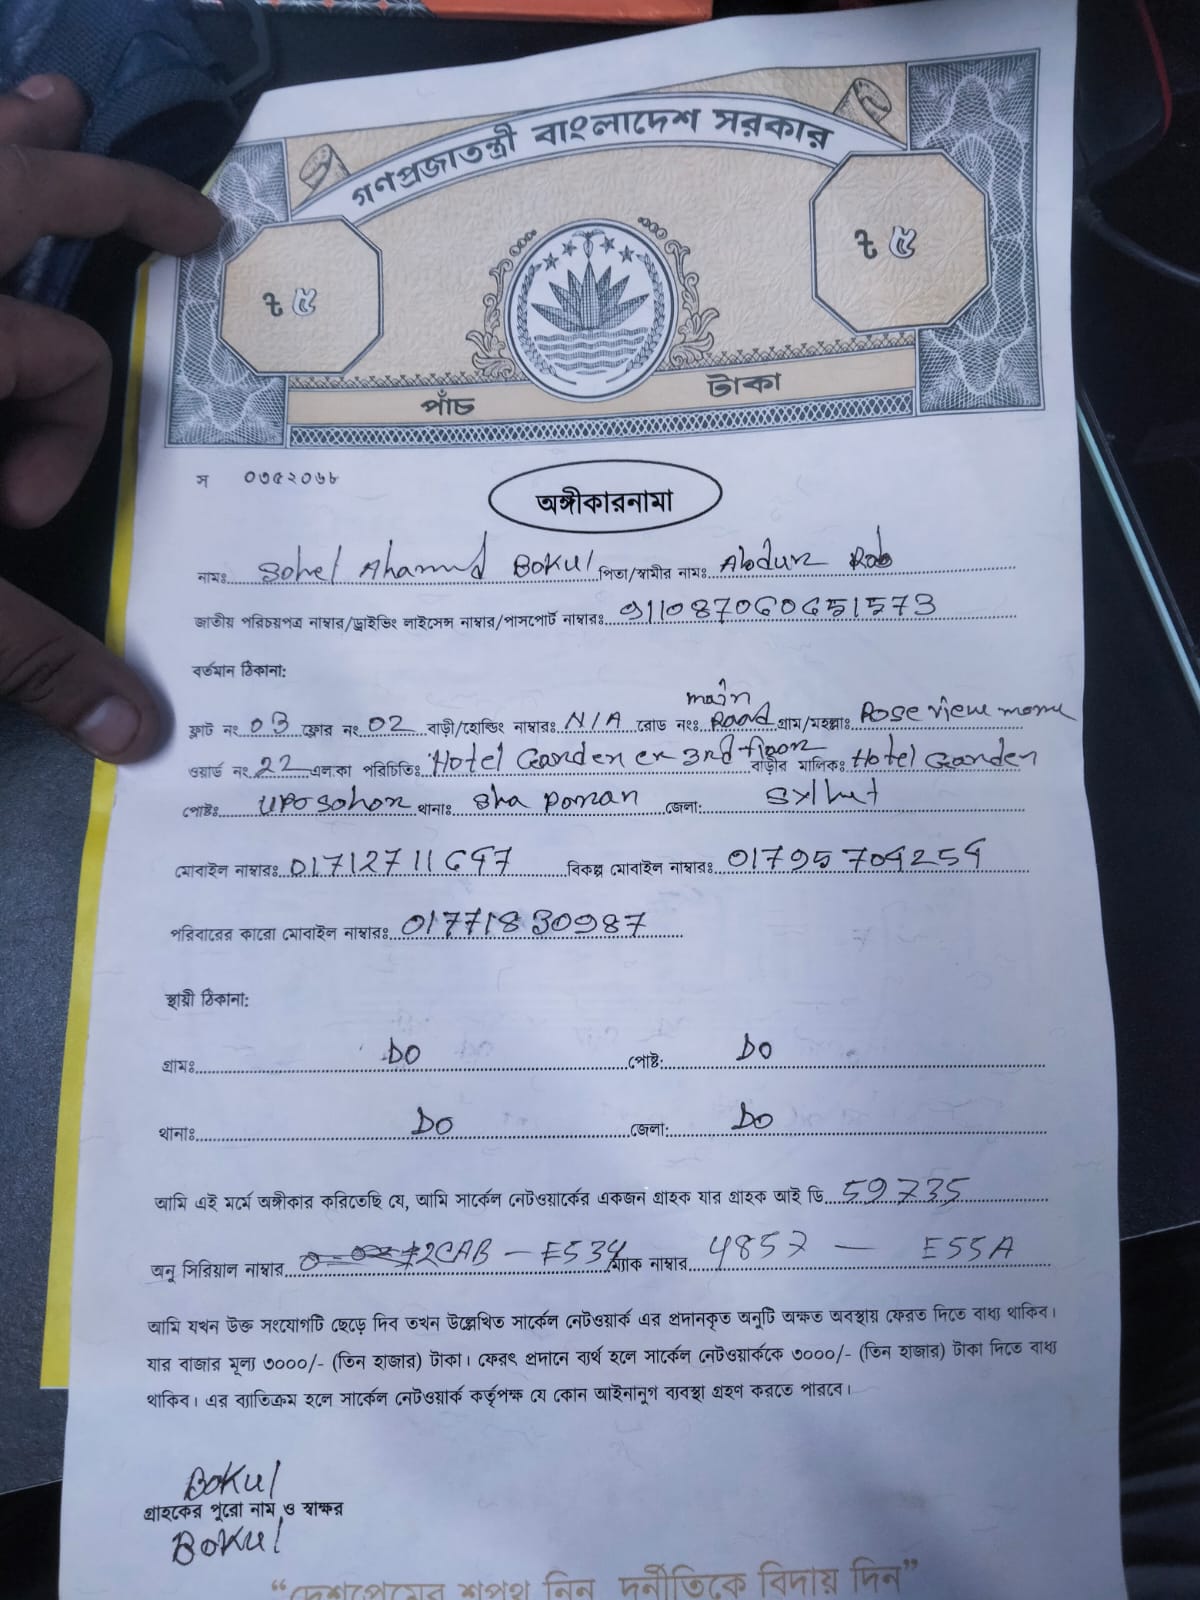 গণপ্রজাতন্ত্রী বাংলাদেশ সরকার
৳ ৫ ৳ ৫
পাঁচ টাকা
স ০৩৫২০৬৮
অঙ্গীকারনামা
নামঃ Sohel Ahamed BOKUl পিতা/স্বামীর নামঃ Abdur Rob
জাতীয় পরিচয়পত্র নাম্বার/ড্রাইভিং লাইসেন্স নাম্বার/পাসপোর্ট নাম্বারঃ
বর্তমান ঠিকানা:
ফ্লাট নং 03 ফ্লোর নং 02 বাড়ী/হোল্ডিং নাম্বারঃ N/A রোড নংঃ main Road গ্রাম/মহল্লাঃ Rose view
ওয়ার্ড নং 22 এলাকা পরিচিতিঃ Hotel Garden er 3rd floor বাড়ীর মালিকঃ Hotel Garden
পোষ্টঃ Uposohor থানাঃ Sha poran জেলা: Sylhet
মোবাইল নাম্বারঃ বিকল্প মোবাইল নাম্বারঃ 01795704254
পরিবারের কারো মোবাইল নাম্বারঃ 01771830987
স্থায়ী ঠিকানা:
গ্রামঃ DO পোষ্ট: DO
থানাঃ DO জেলা: DO
আমি এই মর্মে অঙ্গীকার করিতেছি যে, আমি সার্কেল নেটওয়ার্কের একজন গ্রাহক যার গ্রাহক আই ডি 59735
অনু সিরিয়াল নাম্বার 2CAB – E534 ম্যাক নাম্বার 4857 — E55A
আমি যখন উক্ত সংযোগটি ছেড়ে দিব তখন উল্লেখিত সার্কেল নেটওয়ার্ক এর প্রদানকৃত অনুটি অক্ষত অবস্থায় ফেরত দিতে বাধ্য থাকিব।
যার বাজার মূল্য ৩০০০/- (তিন হাজার) টাকা। ফেরৎ প্রদানে ব্যর্থ হলে সার্কেল নেটওয়ার্ককে ৩০০০/- (তিন হাজার) টাকা দিতে বাধ্য
থাকিব। এর ব্যাতিক্রম হলে সার্কেল নেটওয়ার্ক কর্তৃপক্ষ যে কোন আইনানুগ ব্যবস্থা গ্রহণ করতে পারবে।
BOKUl
গ্রাহকের পুরো নাম ও স্বাক্ষর
BOKUl
“দেশপ্রেমের শপথ নিন, দুর্নীতিকে বিদায় দিন”